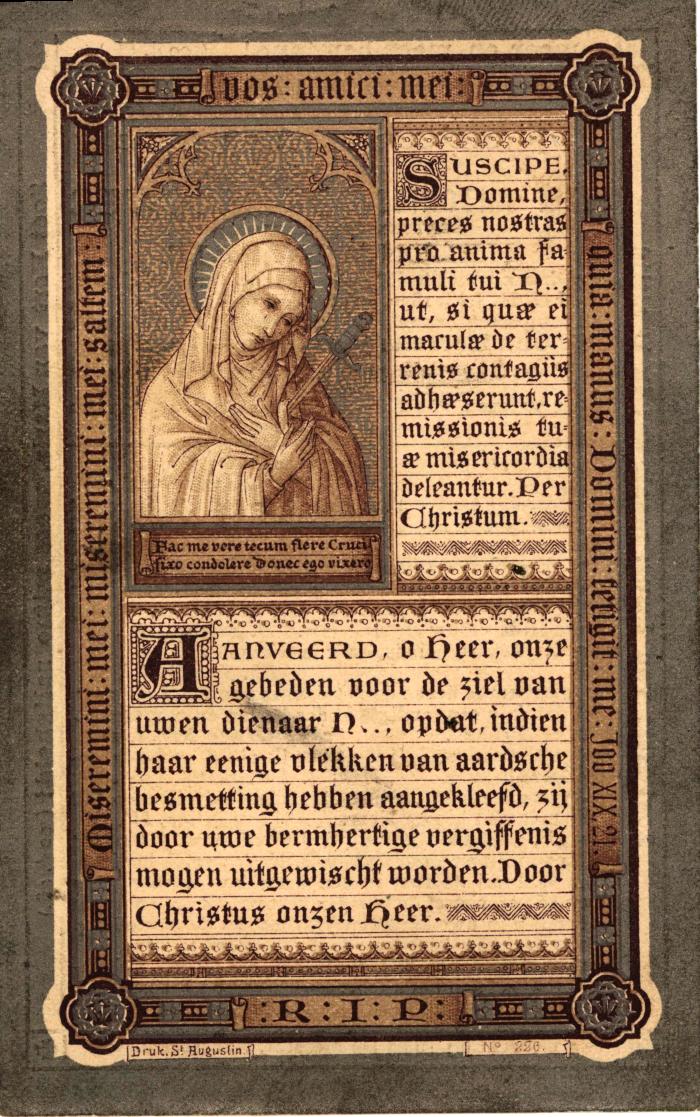 Miseremini: mei: miseremini: mei: saltem
vos: amici: mei:
quia: manus: Domini: tetigit: me: Job XIX 21.
SUSCIPE,
Domine,
preces nostras
pro anima fa-
muli tui N..,
ut, si quæ ei
maculæ de ter-
renis contagiis
adhæserunt, re-
missionis tu-
æ misericordia
deleantur. Per
Christum.
Fac me vere tecum flere Cruci
fixo condolere Donec ego vixero
AANVEERD, o Heer, onze
gebeden voor de ziel van
uwen dienaar N.., opdat, indien
haar eenige vlekken van aardsche
besmetting hebben aangekleefd, zij
door uwe bermhertige vergiffenis
mogen uitgewischt worden. Door
Christus onzen Heer.
: R : I : P :
Druk. St Augustin.
No 226.